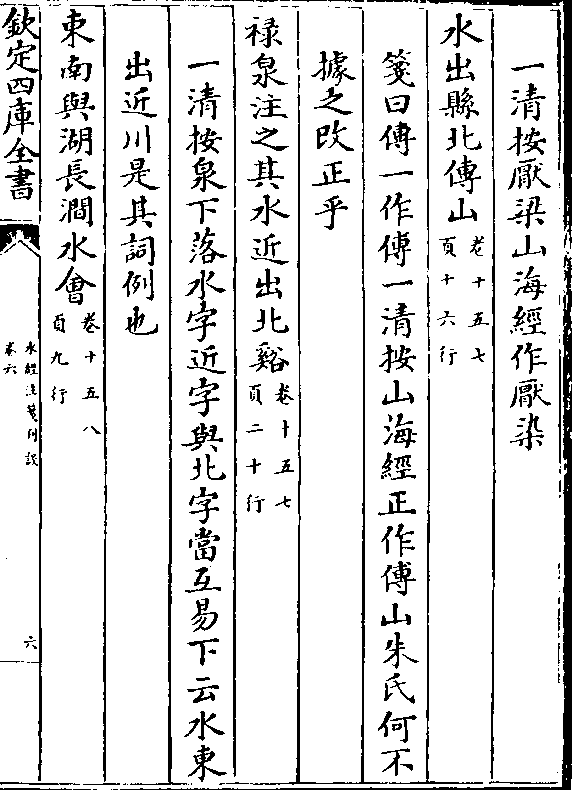 一清按厭梁山海經作厭染
水出縣北傳山卷十五七頁十六行
箋曰傳一作傅一清按山海經正作傅山朱氏何不
據之改正乎
禄泉注之其水近出北谿卷十五七頁二十行
一清按泉下落水字近字與北字當互易下云水東
出近川是其詞例也
東南與湖長澗水會卷十五八頁九行
欽定四庫全書
水經注箋刊誤
卷六
六